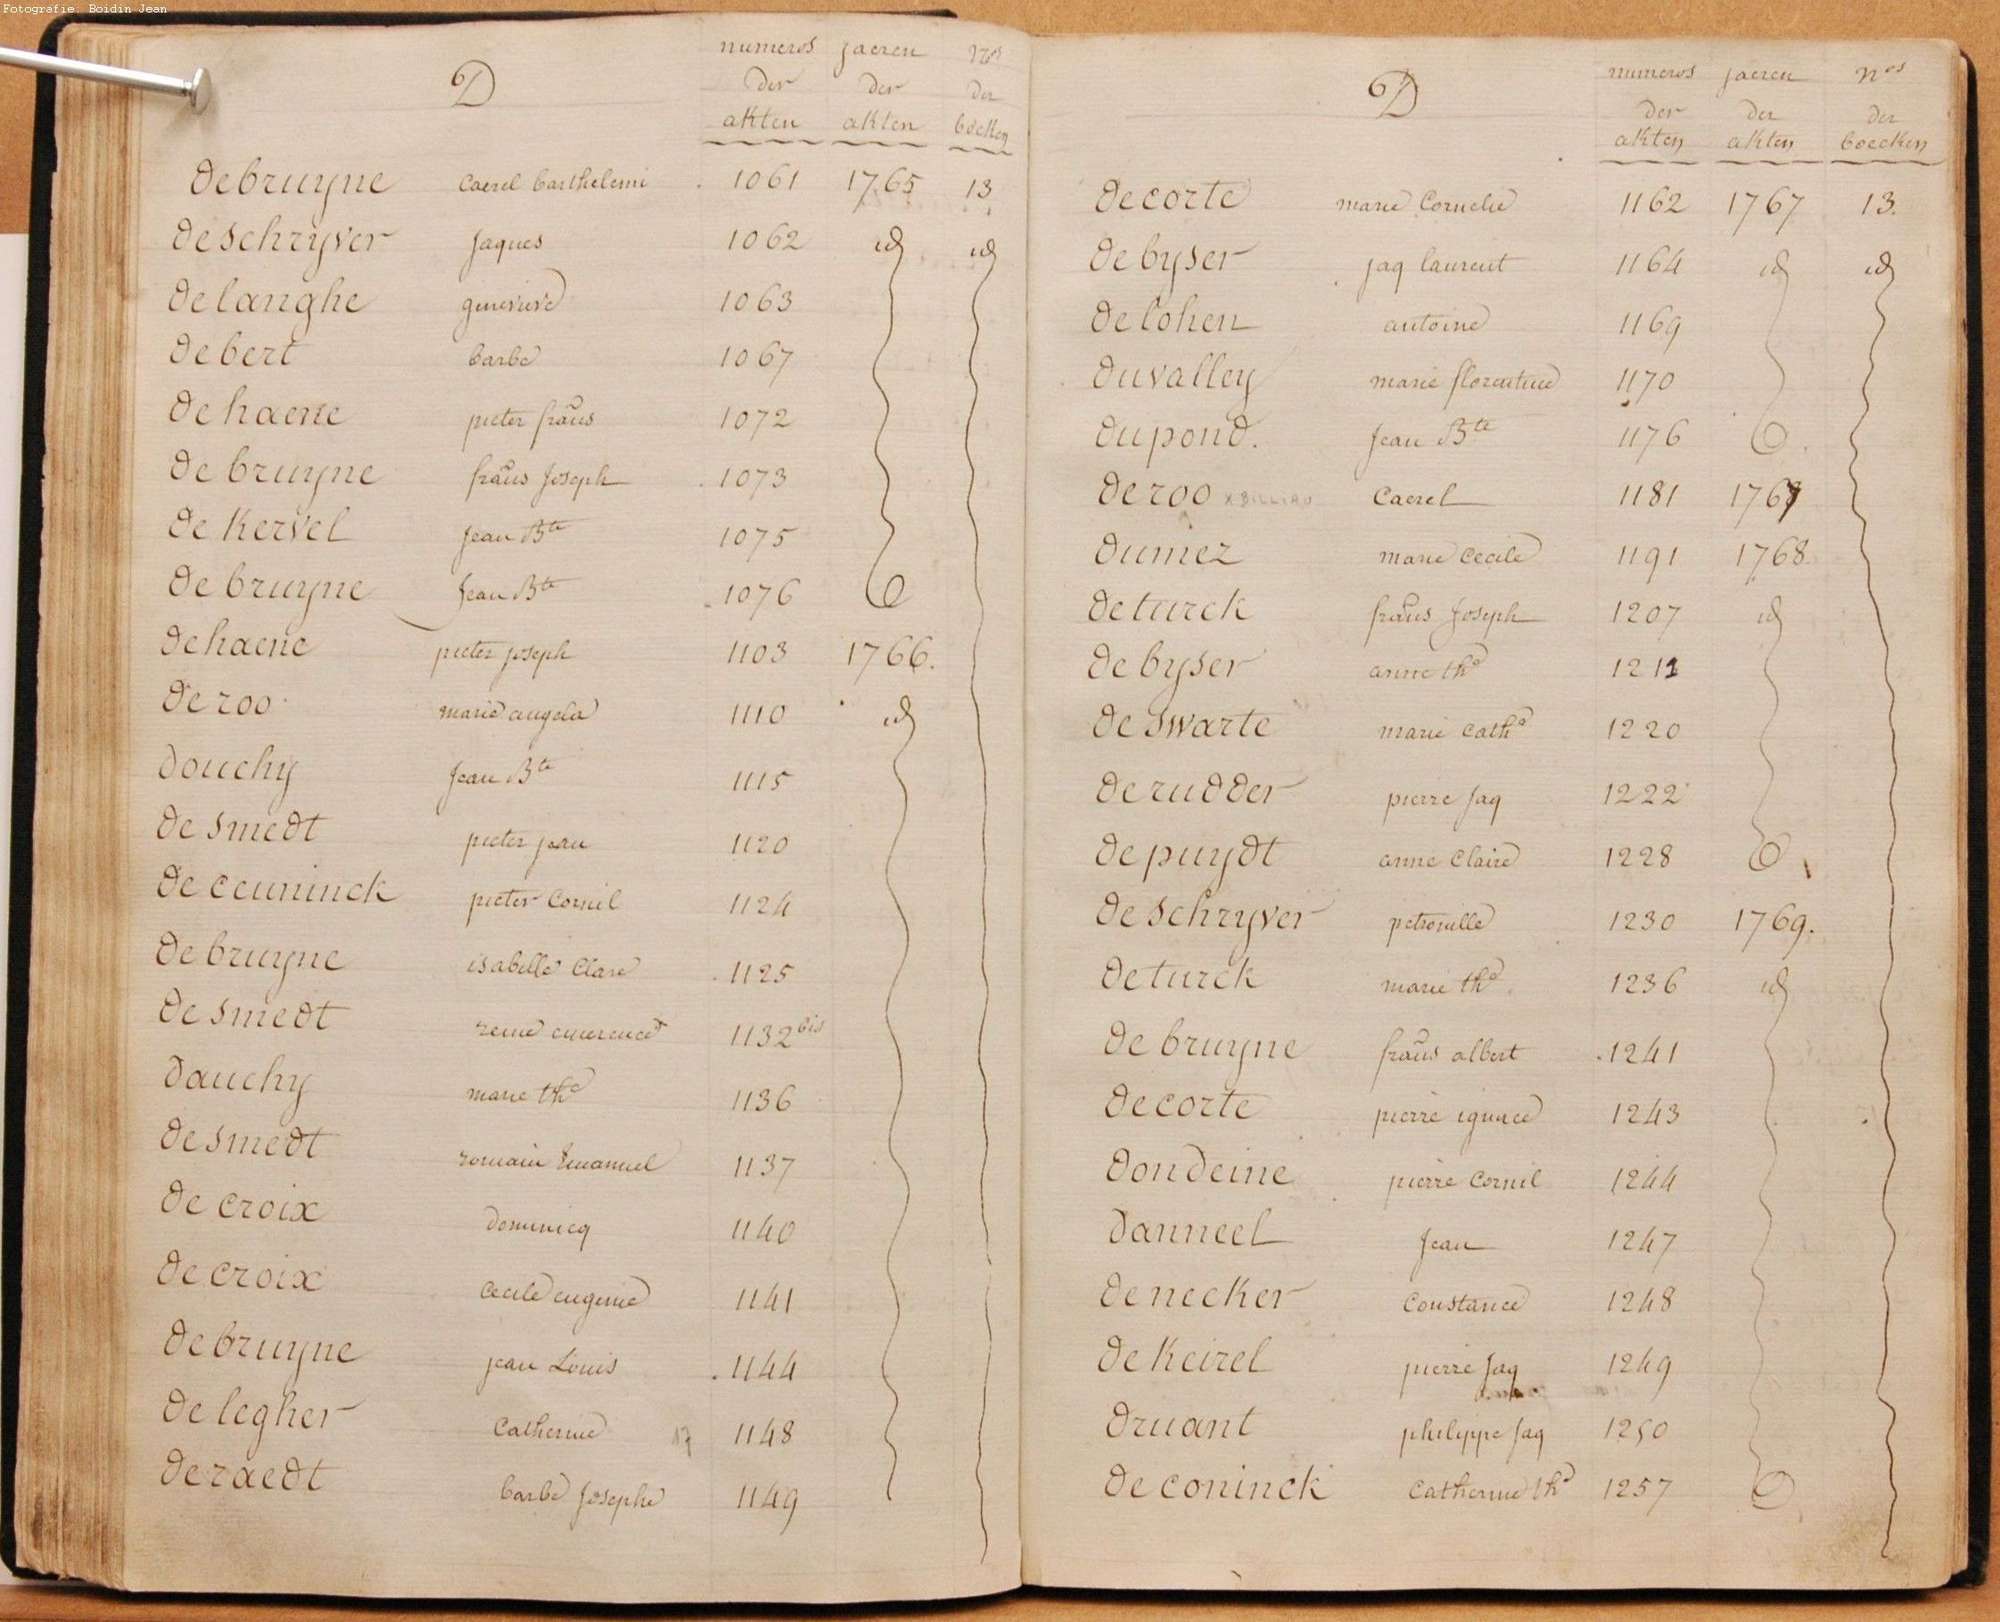 Fotografie: Boidin Jean
D numeros jaeren nos
der der der
akten akten boeken
debruyne Caerel barthelemi 1061 1765 13
deschryver Jaques 1062 id id
delanghe genevieve 1063
debert barbe 1067
dehaene pieter frans 1072
debruyne frans Joseph 1073
dekervel Jean Bte 1075
debruyne Jean Bte 1076
dehaene pieter joseph 1103 1766.
deroo marie angela 1110 id
douchy Jean Bte 1115
desmedt pieter jean 1120
deceuninck pieter Cornil 1124
debruyne isabelle Clare 1125
desmedt reine emerence 1132 bis
dauchy marie the 1136
desmedt romain Emanuel 1137
decroix dominicq 1140
decroix Cecile eugenie 1141
debruyne jean Louis 1144
delegher Catherine 1148
deraedt barbe Josephe 1149
D numeros jaeren nos
der der der
akten akten boecken
decorte marie Cornelie 1162 1767 13.
debyser jaq laurent 1164 id id
delohen antoine 1169
duvalley marie florentine 1170
dupond. Jean Bte 1176
deroo x BILLIAU Caerel 1181 1767
dumez marie Cecile 1191 1768
deturck frans Joseph 1207 id
debyser anne the 1211
deswarte marie Cathe 1220
derudder pierre Jaq 1222
depuydt anne Claire 1228
deschryver petronille 1230 1769.
deturck marie the 1236 id
debruyne frans albert 1241
decorte pierre ignace 1243
dondeine pierre Cornil 1244
danneel Jean 1247
denecker Constance 1248
dekeirel pierre Jaq 1249
druant philippe Jaq 1250
deconinck Catherine the 1257